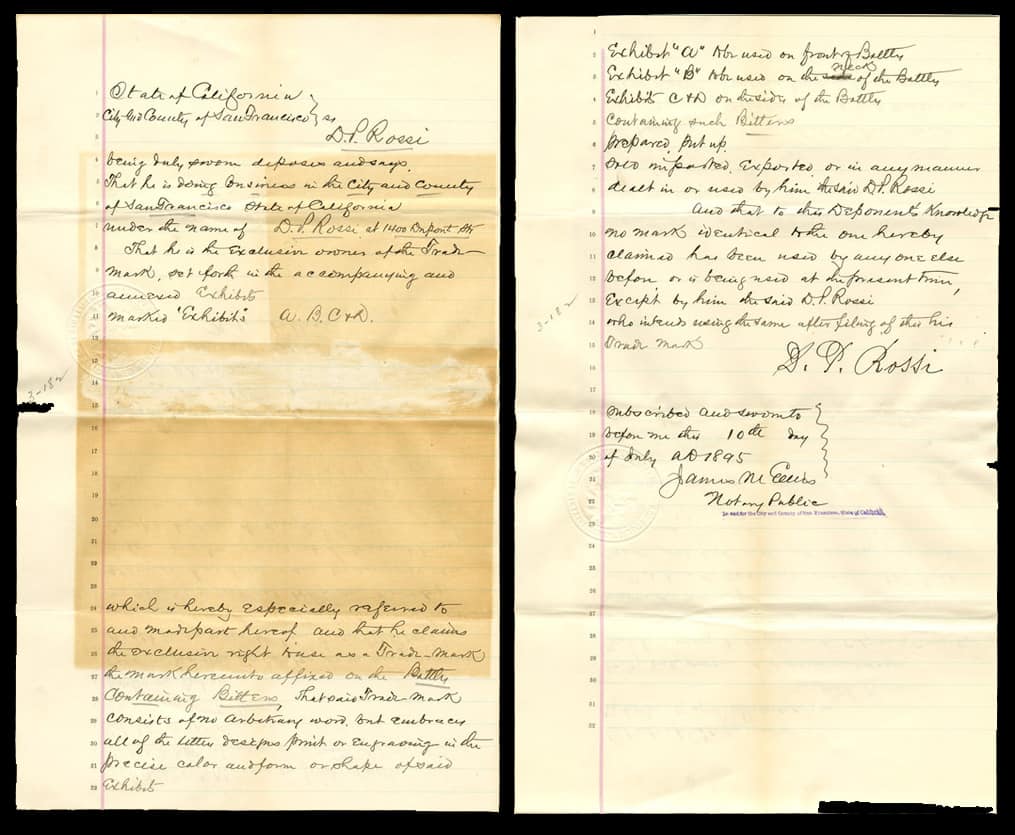 State of California
City and County of San Francisco } ss
D. P. Rossi
being duly sworn deposes and says.
That he is doing business in the City and County
of San Francisco State of California
under the name of D. P. Rossi at 1400 Dupont Str
That he is the Exclusive owner of the Trade
mark, set forth in the accompanying and
annexed Exhibits
marked "Exhibits" A. B. C & D.
3-182
which is hereby especially referred to
and made part hereof and that he claims
the exclusive right to use as a Trade-Mark
the mark hereunto affixed on the Bottles
Containing Bitters, That said Trade-Mark
Consists of no arbitrary word, but embraces
all of the letter designs print or Engraving in the
precise color and form or shape of said
Exhibits
Exhibit "A" to be used on front of Bottles
Exhibit "B" to be used on the neck of the Bottles
Exhibits C & D on the sides of the Bottles
Containing such Bitters
prepared, put up,
sold imported, Exported, or in any manner
dealt in or used by him the said D. P. Rossi
And that to this Deponents Knowledge
no mark identical to the one hereby
claimed has been used by any one else
before, or is being used at the present time,
Except by him the said D. P. Rossi
who intends using the same after filing of this his
Trade Mark
3-182
D. P. Rossi
Subscribed and sworn to
before me this 10th day
of July AD 1895
James M Ellis
Notary Public
In and for the City and County of San Francisco, State of California